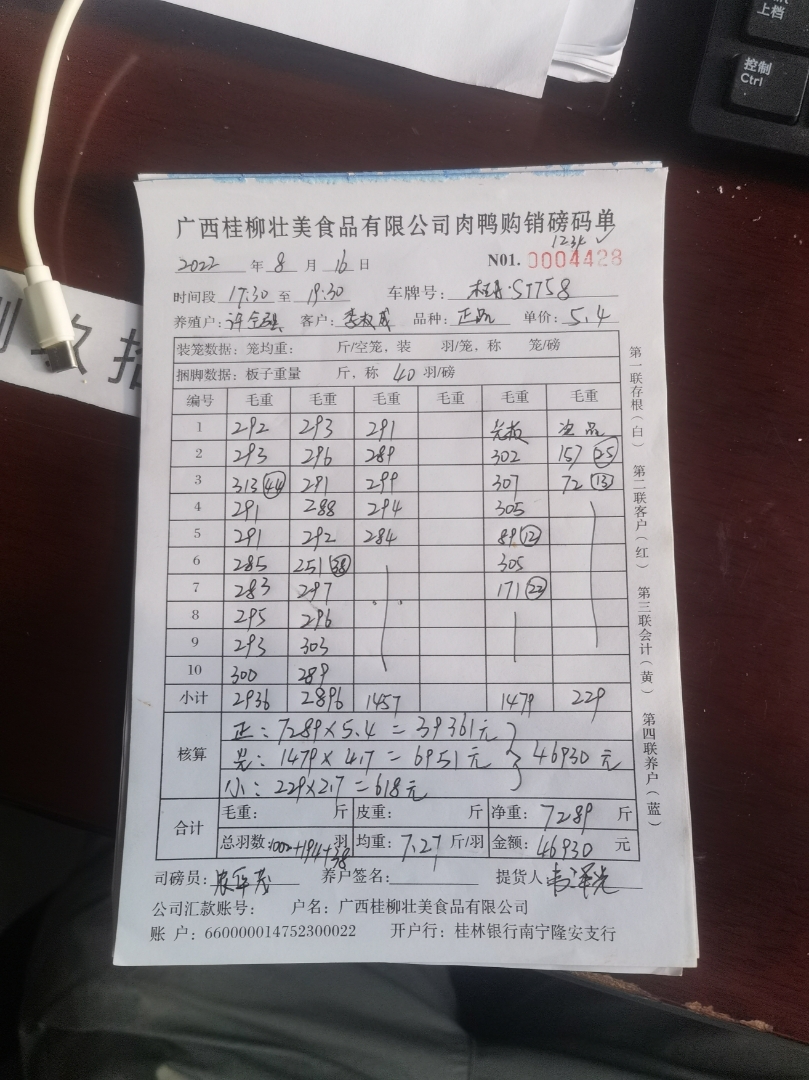 上档
控制
Ctrl
广西桂柳壮美食品有限公司肉鸭购销磅码单
2022 年 8 月 16 日 N01. 0004428
时间段 17:30 至 19:30 车牌号: S7758
养殖户: 客户: 品种: 正品 单价: 5.4
装笼数据: 笼均重: 斤/空笼, 装 羽/笼, 称 笼/磅
捆脚数据: 板子重量 斤, 称 40 羽/磅
编号 毛重 毛重 毛重 毛重 毛重 毛重
1 292 293 291 次品
2 293 296 289 302 157 25
3 313 44 291 299 307 72 13
4 291 288 294 305
5 291 292 284 89 12
6 285 251 38 305
7 283 297 171 22
8 295 296
9 293 303
10 300 289
小计 2936 2896 1457 1479 229
核算 正: 7289×5.4=39361元
1479×4.7=6951元 46930元
小: 229×2.7=618元
合计 毛重: 斤 皮重: 斤 净重: 7289 斤
总羽数: 1002+191+38 羽 均重: 7.27 斤/羽 金额: 46930 元
司磅员: 养户签名: 提货人
公司汇款账号: 户名: 广西桂柳壮美食品有限公司
账 户: 660000014752300022 开户行: 桂林银行南宁隆安支行
第一联存根(白) 第二联客户(红) 第三联会计(黄) 第四联养户(蓝)